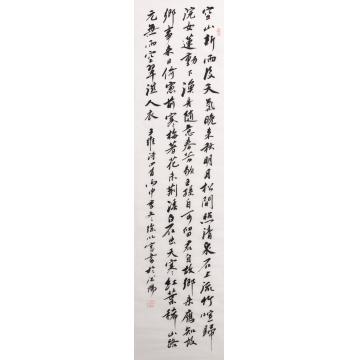 空山新雨後天氣晚來秋明月松間照清泉石上流竹喧歸
浣女蓮動下漁舟隨意春芳歇王孫自可留君自故鄉來應知故
鄉事來日倚窗前寒梅著花未荊溪白石出天寒紅葉稀山路
元無雨空翠濕人衣 王維詩 丙申